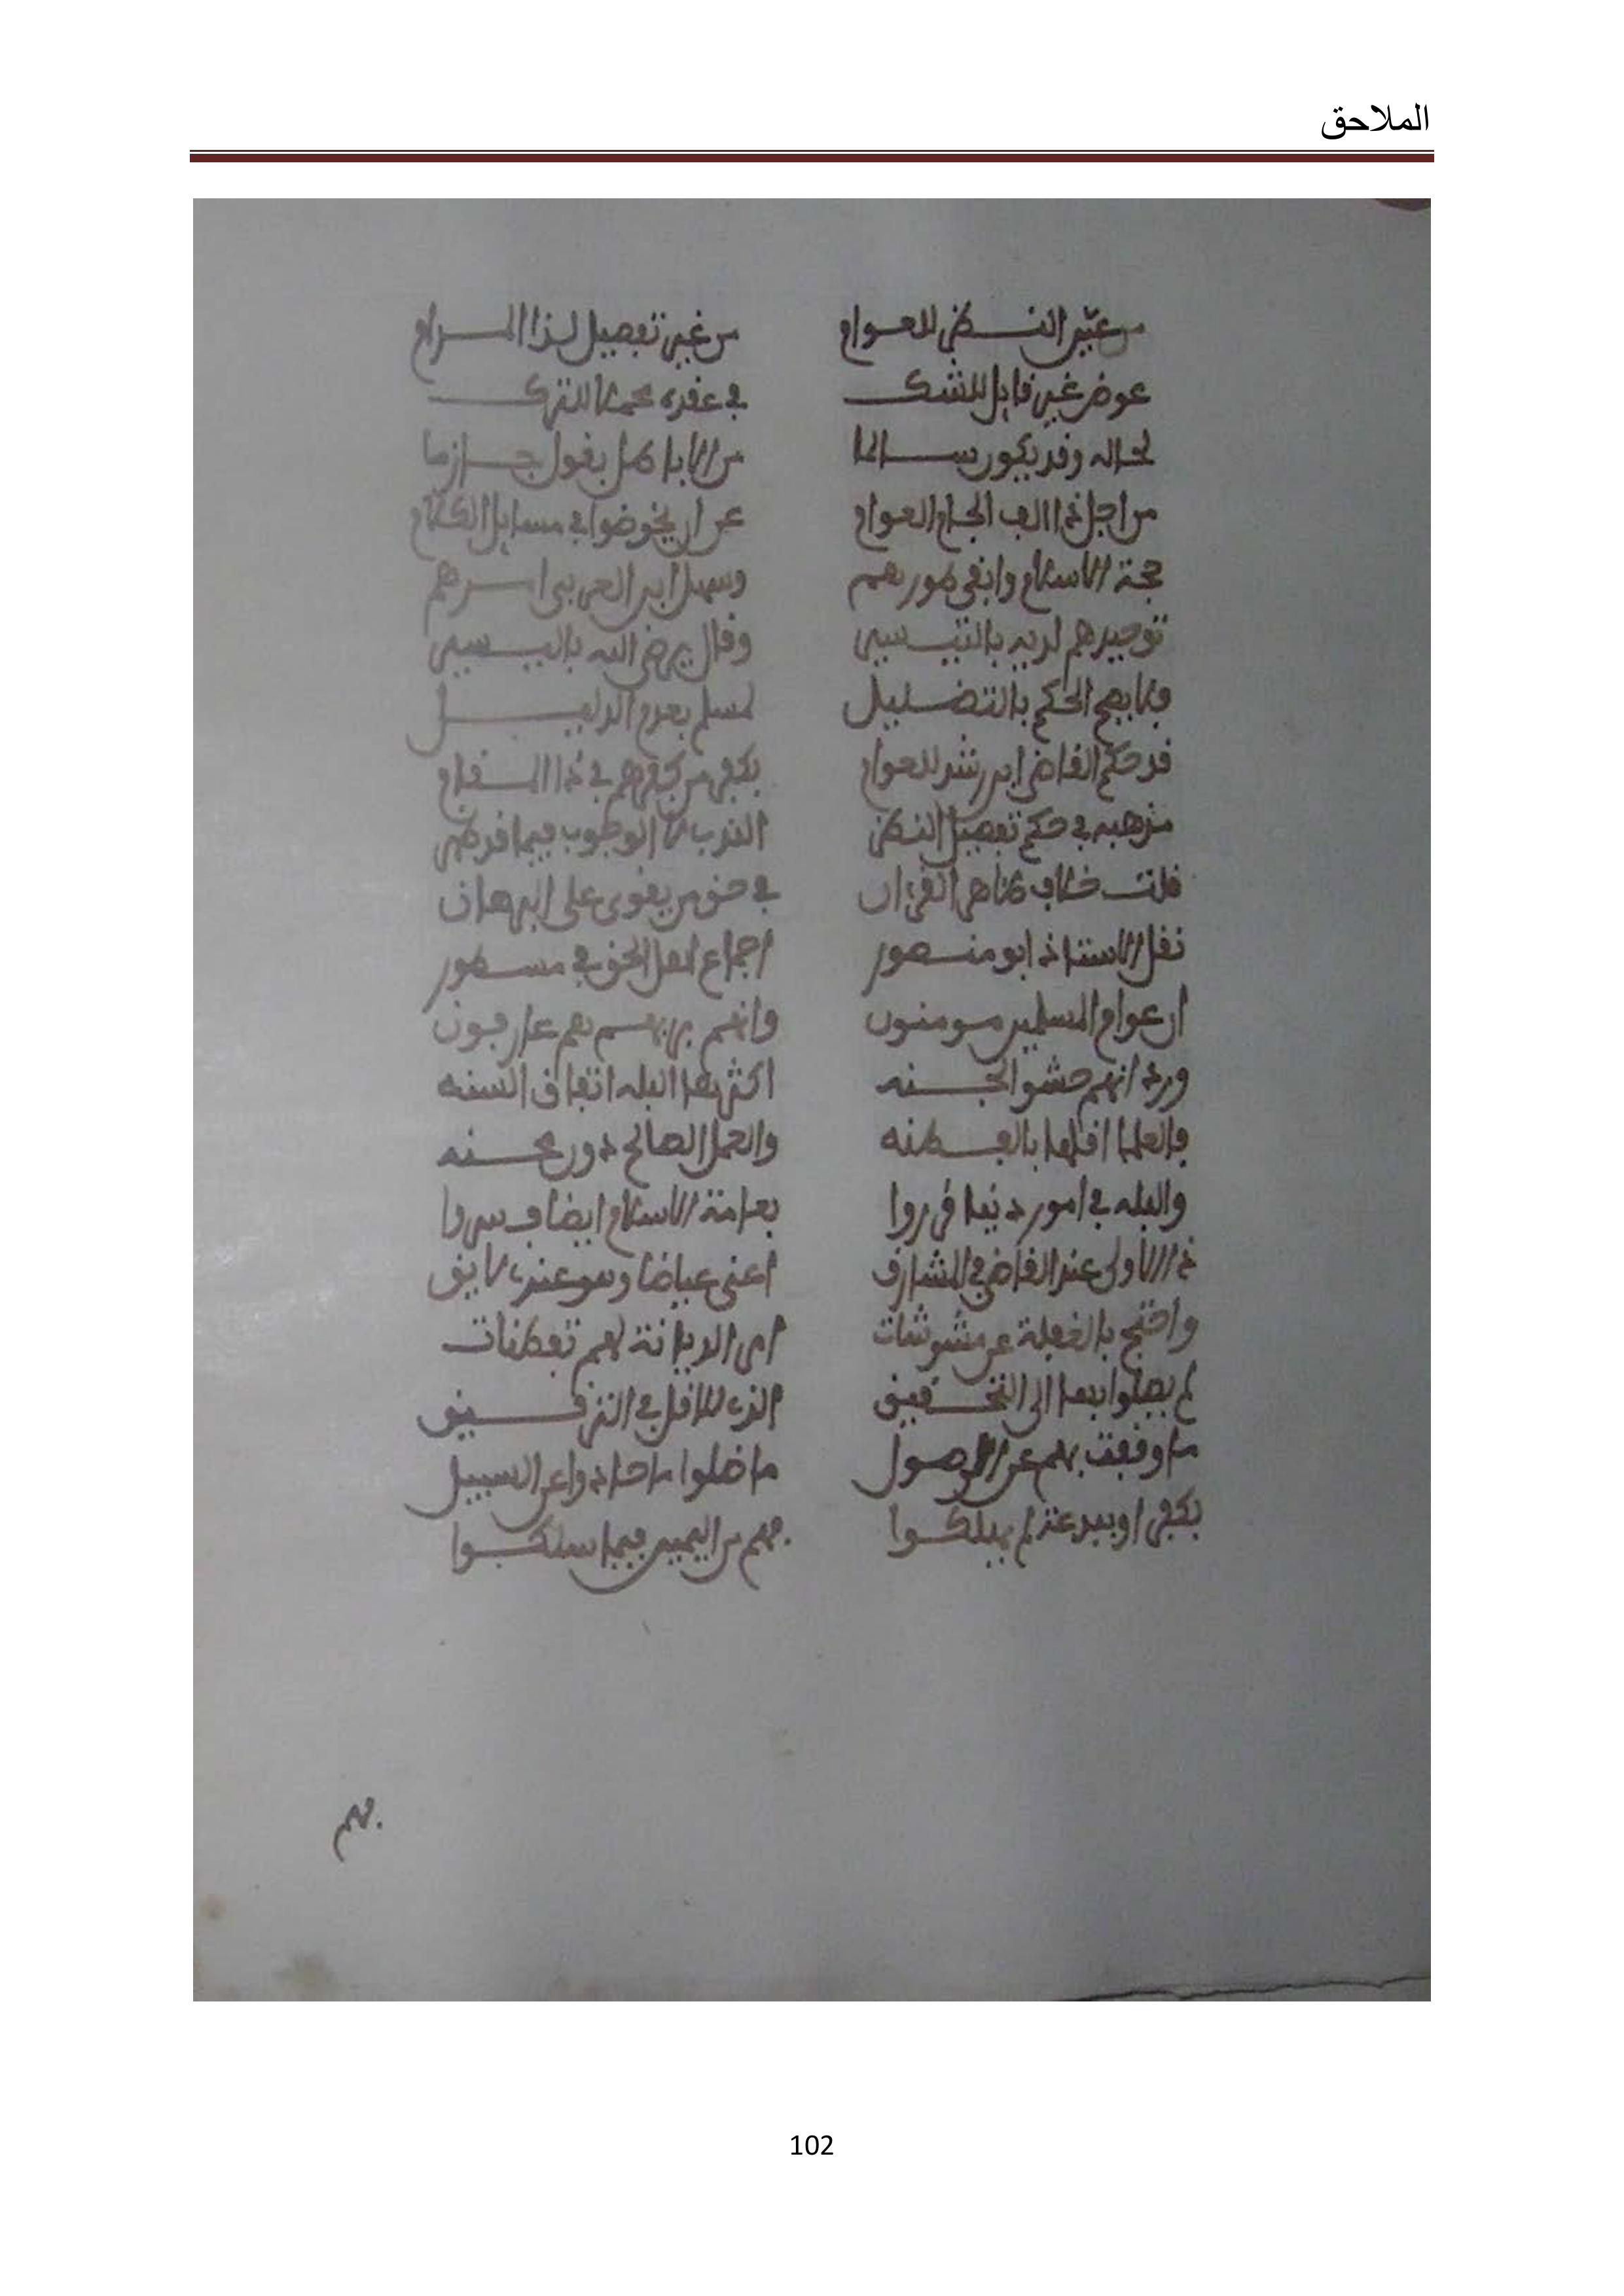 الملاحق
من عيّن النظر للعوام من غير تفصيل لذا المرام
عوض غير قابل للشك في عقده محمد للترك
لحاله وقد يكون سالما من الابا هل يقول جازما
من اجل ذا الف الجام العوام عن ان يخوضوا في مسايل الكلام
حجة الاسلام وابقى طورهم وسهل ابن العربي اسرهم
توحيدهم لديه بالتيسير وقال يرضى الله باليسير
فما يصح الحكم بالتضليل لمسلم بعدم الدليل
قد حكم القاضي ابن رشد للعوام بكفر من كفرهم في ذا المقام
مذهبه في حكم تفصيل النظر الندب لا الوجوب فيما قد ظهر
قلت خلاف ظاهر القرءان في حق من يقوى على البرهان
نقل الاستاذ ابو منصور اجماع اهل الحق في مسطور
ان عوام المسلمين مومنون وانهم بربهم هم عارفون
ورد انهم حشو الجنه اكثرها البله اتفاق السنه
فالعلما اقلها بالفطنه والعمل الصالح دون محنه
والبله في امور دنيا قرروا بعامة الاسلام ايضا فسروا
ذا الاولى عند القاضي في المشارق اعني عياضا وهو عندي لايق
واحتج بالغفلة عن مشوشات امر الديانة لهم تفطنات
لم يصلوا بها الى التحقيق الذي للاقل في التدقيق
ما وقفت بهم عن الوصول ما ضلوا ما حادوا عن السبيل
بكفر او ببدعة لم يهلكوا فهم من اليمين فيما سلكوا
فهم
102